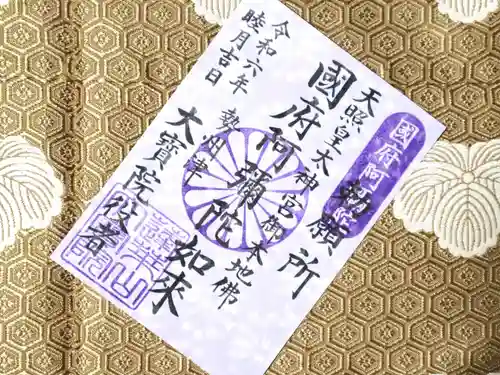 國府阿彌陀
天照皇大神宮御本地佛
勅願所
國府阿彌陀如来
勢州津
大寶院役者
令和六年
睦月吉日